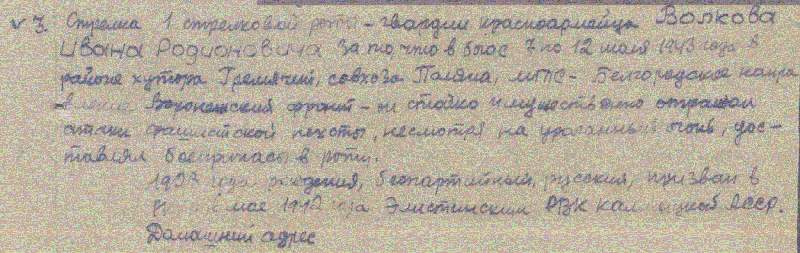 ✓ 3. Стрелка 1 стрелковой роты – гвардии красноармейца Волкова
Ивана Родионовича за то что в боях 7 по 12 июля 1943 года в
районе хутора Гремячий, совхоза Поляна, МТС – Белгородское напра
вление Воронежский фронт – он стойко и мужественно отражал
атаки фашистской пехоты, несмотря на ураганный огонь, дос-
тавлял боеприпасы в роты.
года рождения, беспартийный, русский, призван в
в мае 1942 года Элистинским РВК Калмыцкой АССР.
Домашний адрес